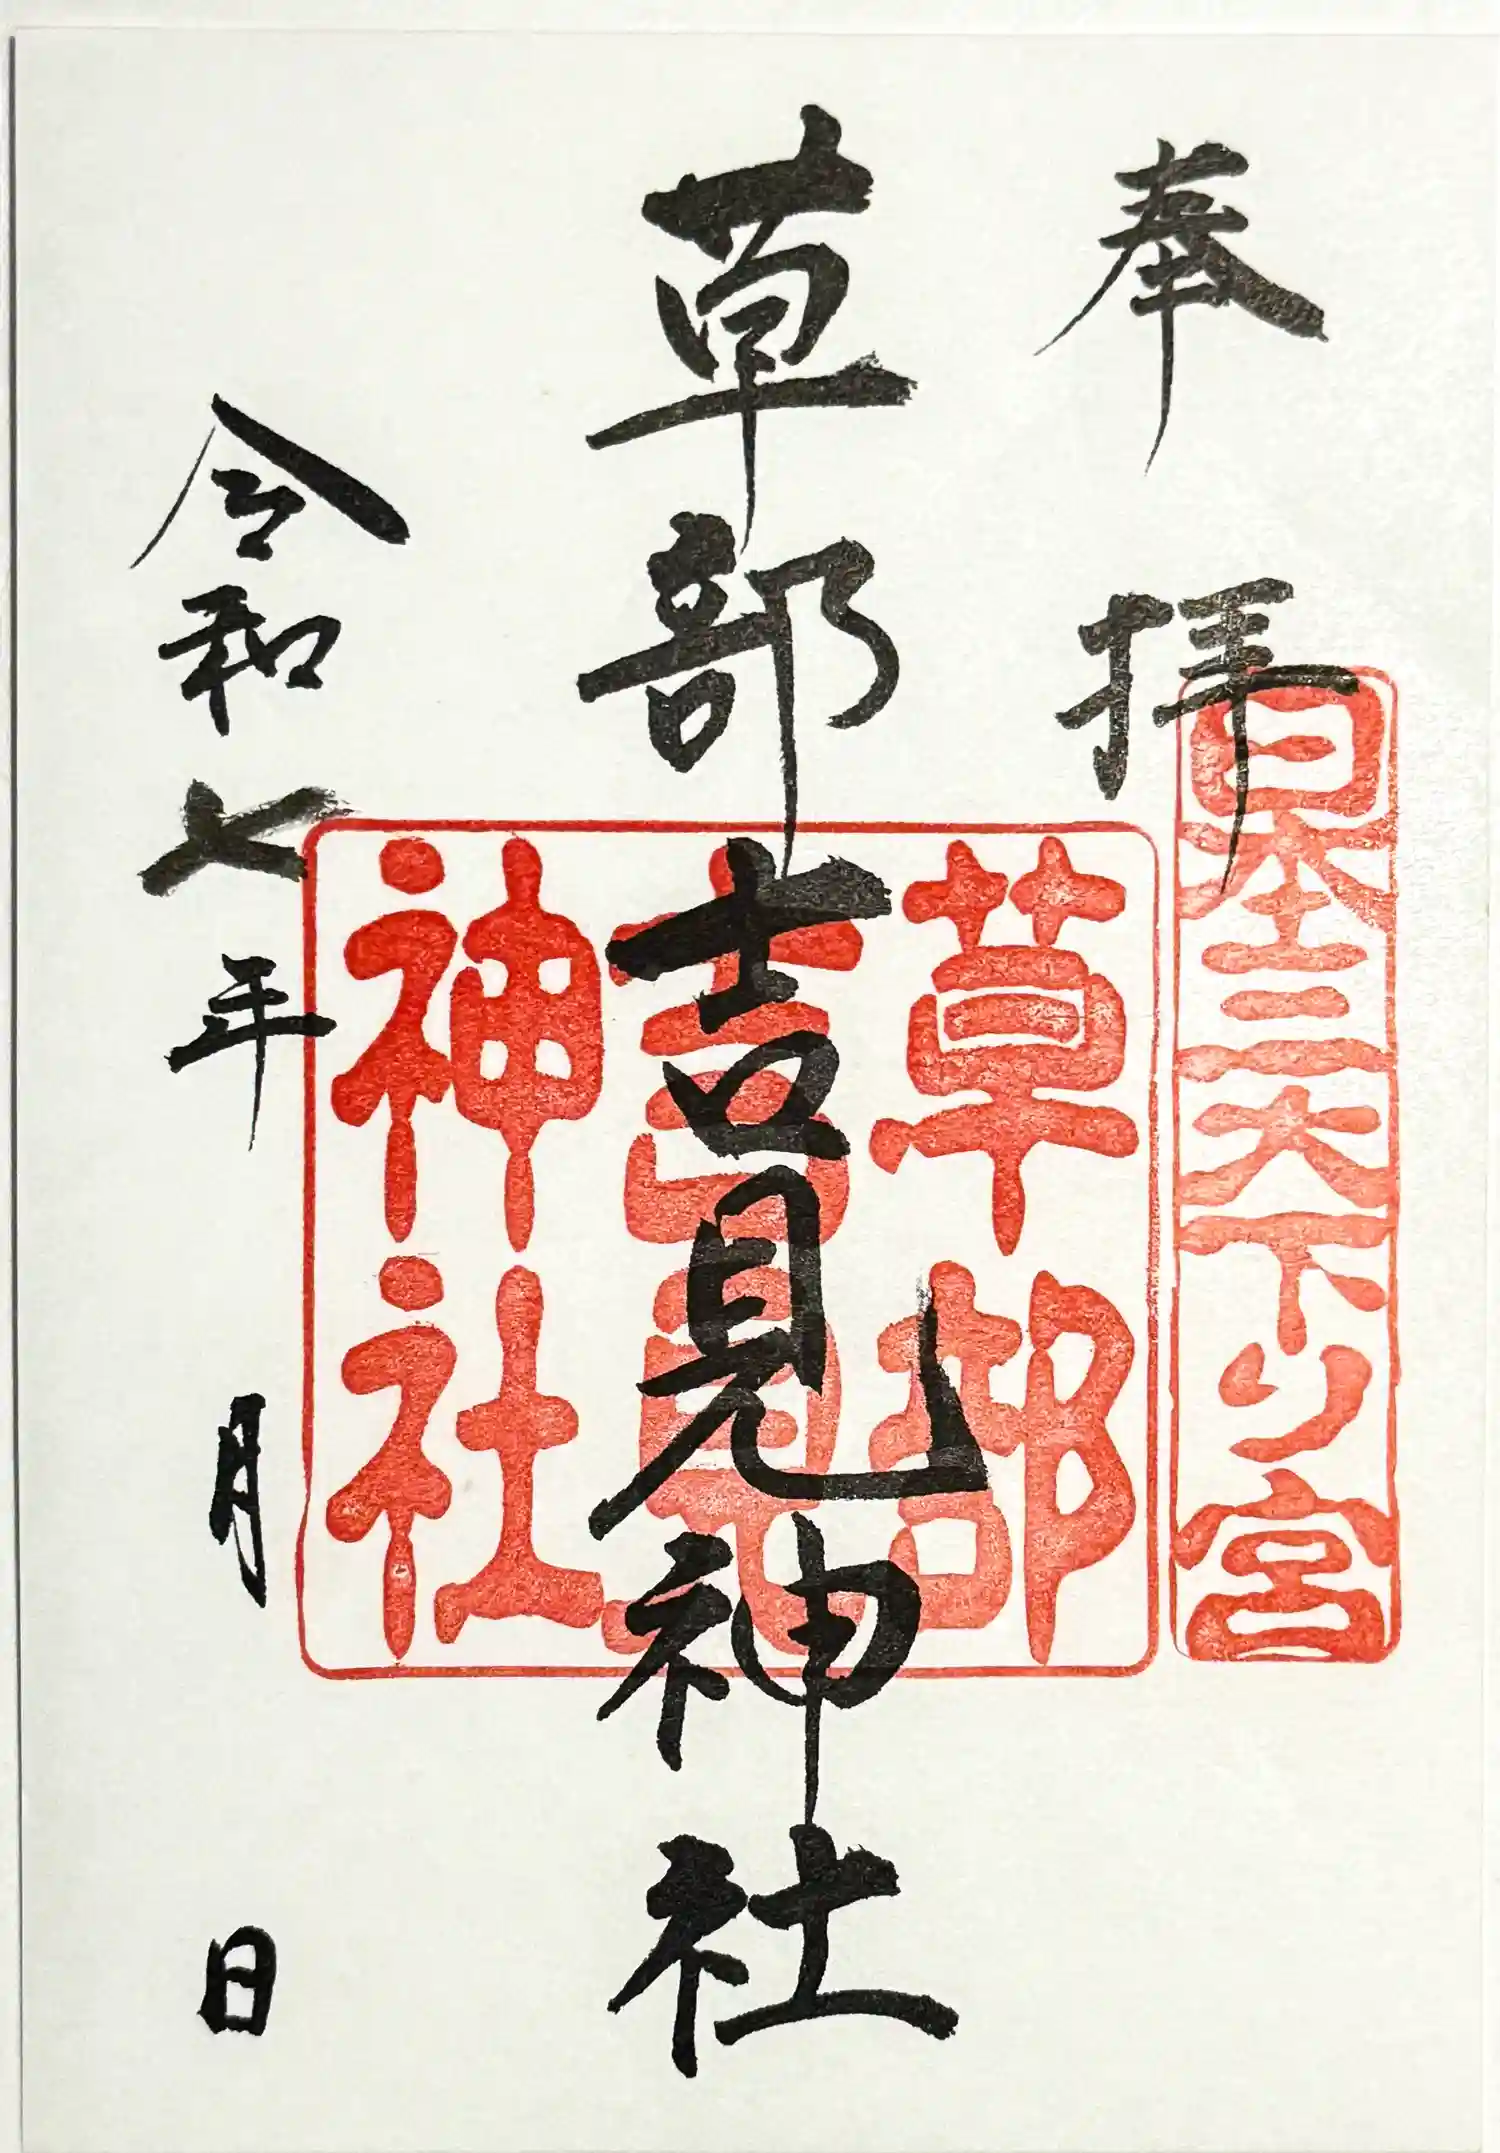 奉拝
日本三大下り宮
草部吉見神社
草部
吉見
神社
令和七年 月 日